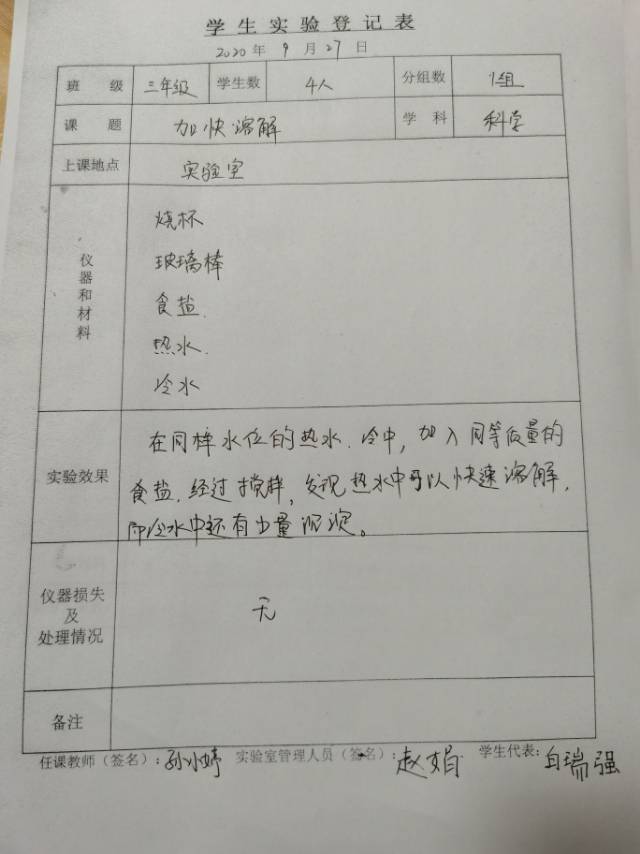 学生实验登记表
2020年 9月27日
班 级 三年级 学生数 4人 分组数 1组
课 题 加快溶解 学 科 科学
上课地点 实验室
仪器和材料
烧杯
玻璃棒
食盐.
热水.
冷水
实验效果
在同样水位的热水.冷中,加入同等质量的
食盐.经过搅拌,发现热水中可以快速溶解,
即冷水中还有少量沉淀。
仪器损失
及
处理情况
无
备注
任课教师(签名):孙小婷 实验室管理人员(签名):赵娟 学生代表:白瑞强